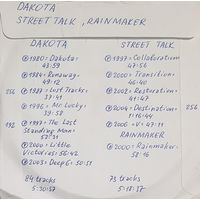 DAKOTA
STREET TALK, RAINMAKER
DAKOTA
℗1980: Dakota:
43:59
℗1984: Runaway:
49:12
256 ℗1987: Lost Tracks:
37:41
℗1996: Mr. Lucky:
39:58
192 ℗1997: The Last
Standing Man:
52:31
℗2000: Little
Victories: 56:42
℗2003: Deep 6: 50:51
84 tracks
5:30:57
STREET TALK
℗1997: Collaboration
47:56
℗2000: Transition:
46:40
℗2002: Restoration:
41:47
℗2004: Destination:
1:16:44 256
℗2006: «V»: 47:11
RAINMAKER
℗2000: Rainmaker:
58:16
73 tracks
5:18:37